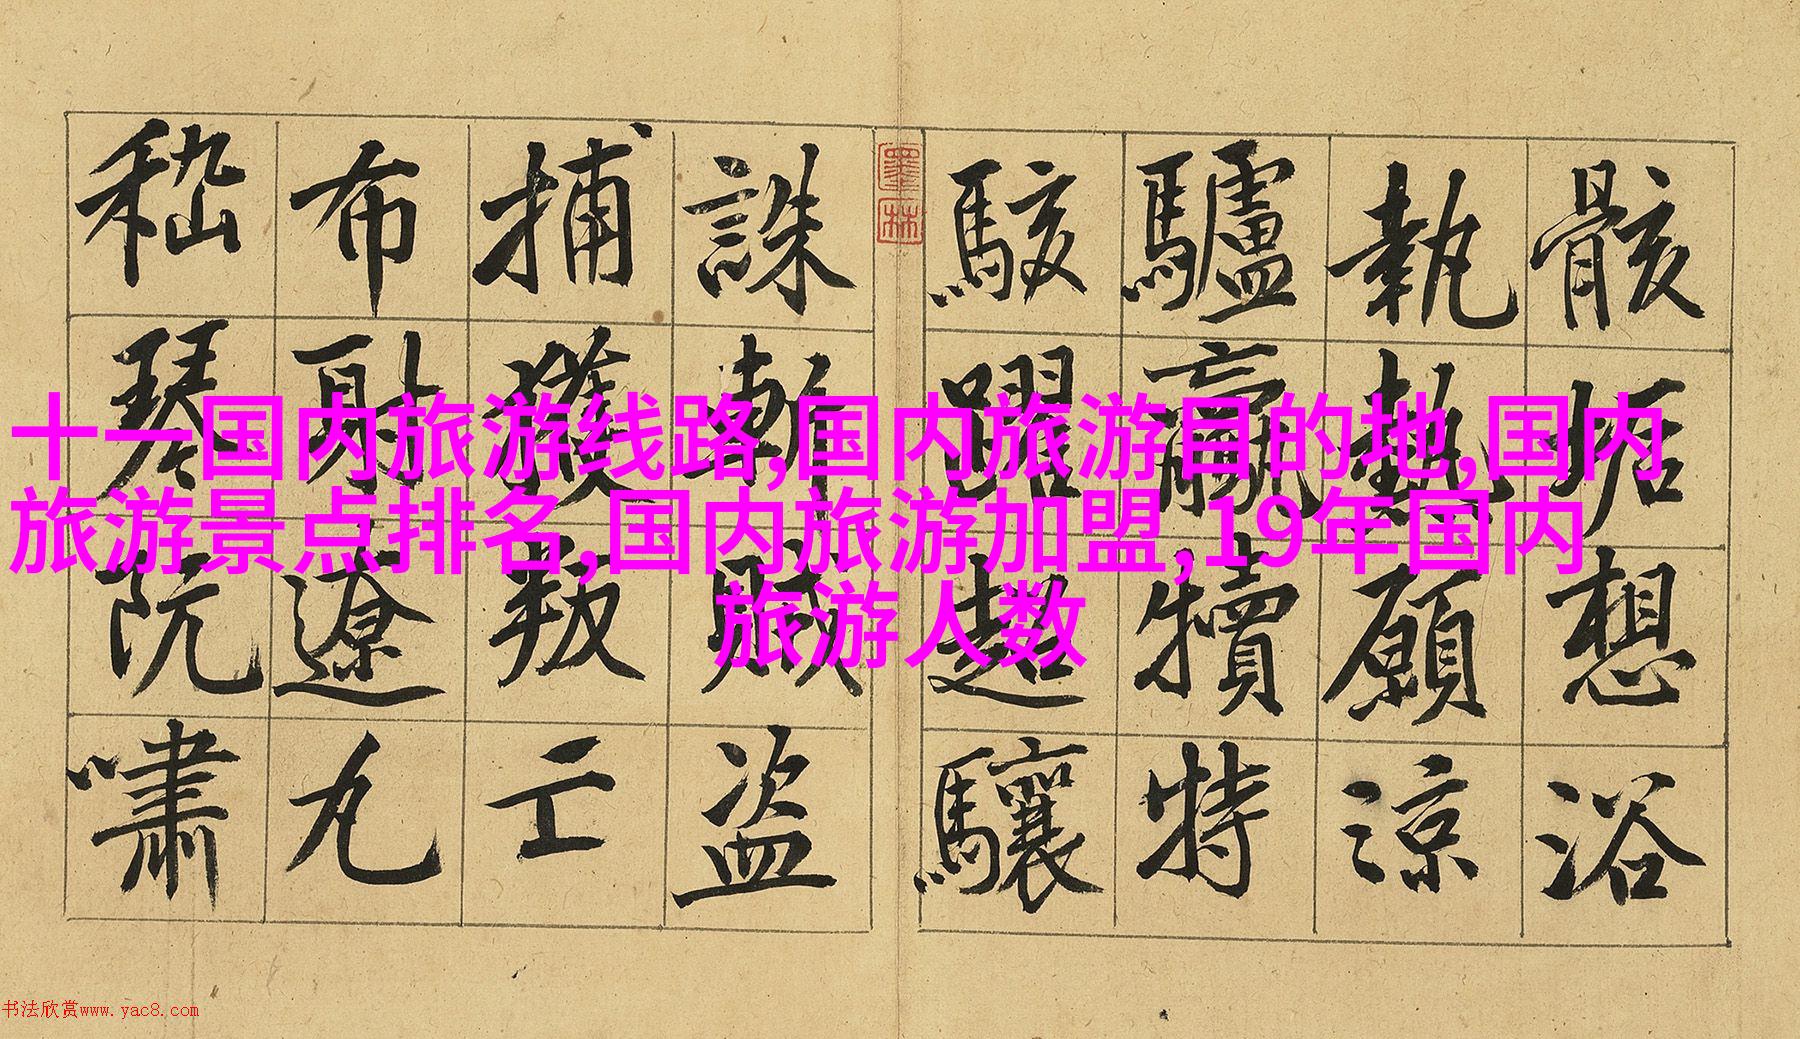 骸垢想浴
執熱願涼
驢犢特
駭躍超驤
墨林
誅斬賊盜
捕獲叛亡
布射遼丸
嵇琴阮嘯
十一国内旅游线路,国内旅游目的地,国内
旅游景点排名,国内旅游加盟,19年国内
旅游人数
书法欣赏www.yac8.com